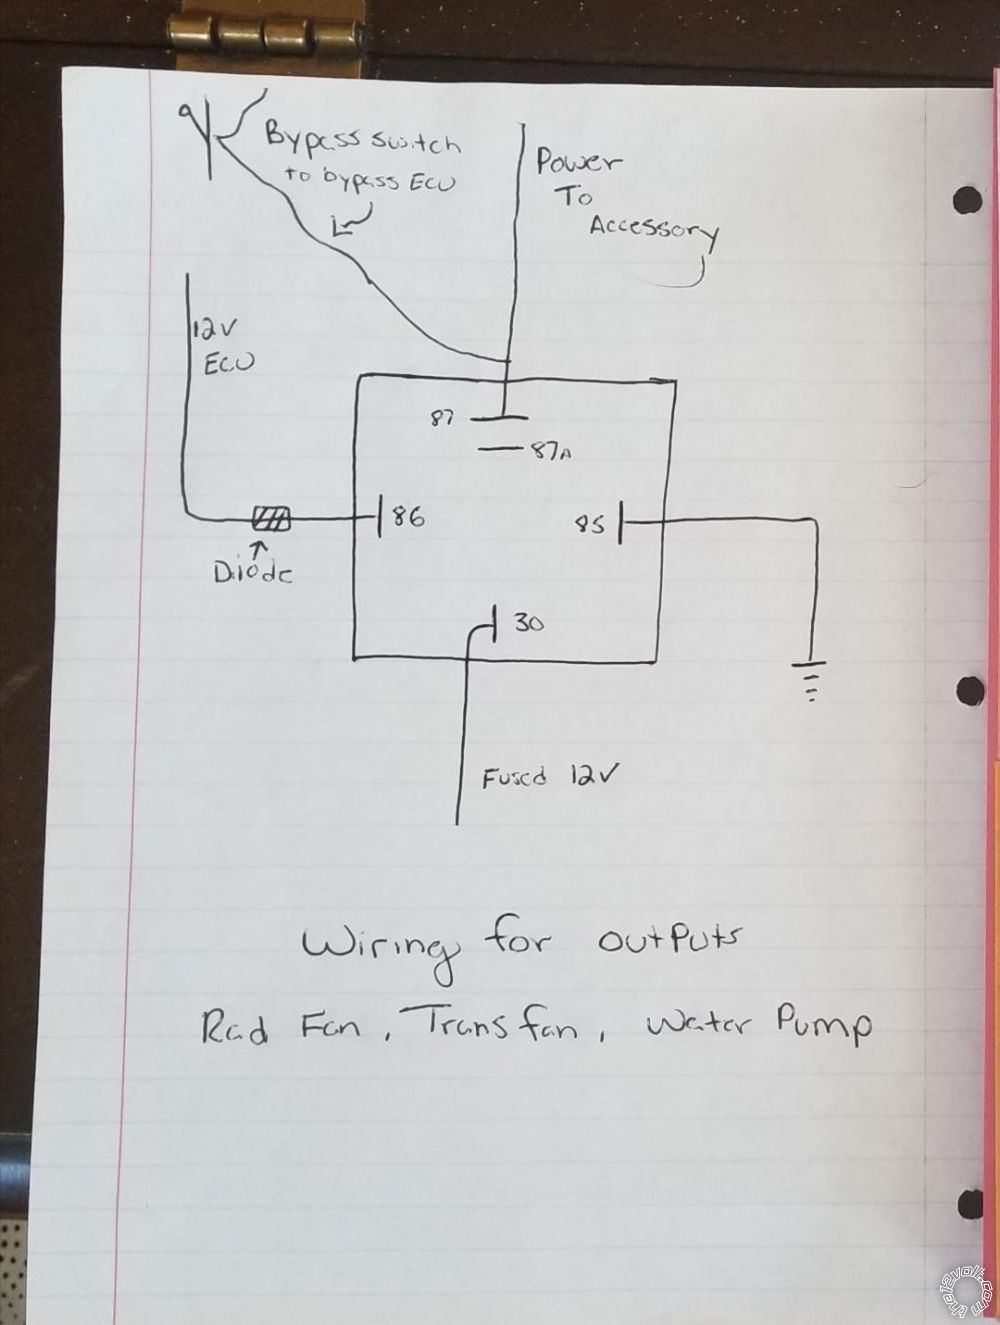 Bypass switch
to bypass ECU
Power
To
Accessory
12V
ECU
87
87A
86
85
Diode
30
Fused 12V
Wiring for outputs
Rad Fan, Trans fan, Water Pump
the12volt.com